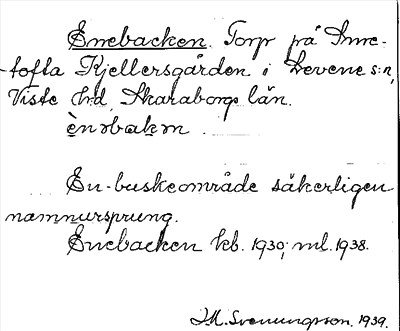 Enebacken. Torp på Inne-
-tofta Kjellersgården i Levene s:n,
Viste hrd, Skaraborgs län.
ènəbakən.
En-buskeområde säkerligen
namnursprung.
Enebacken kb. 1930; ml. 1938.
J.M. Svenungsson. 1939.